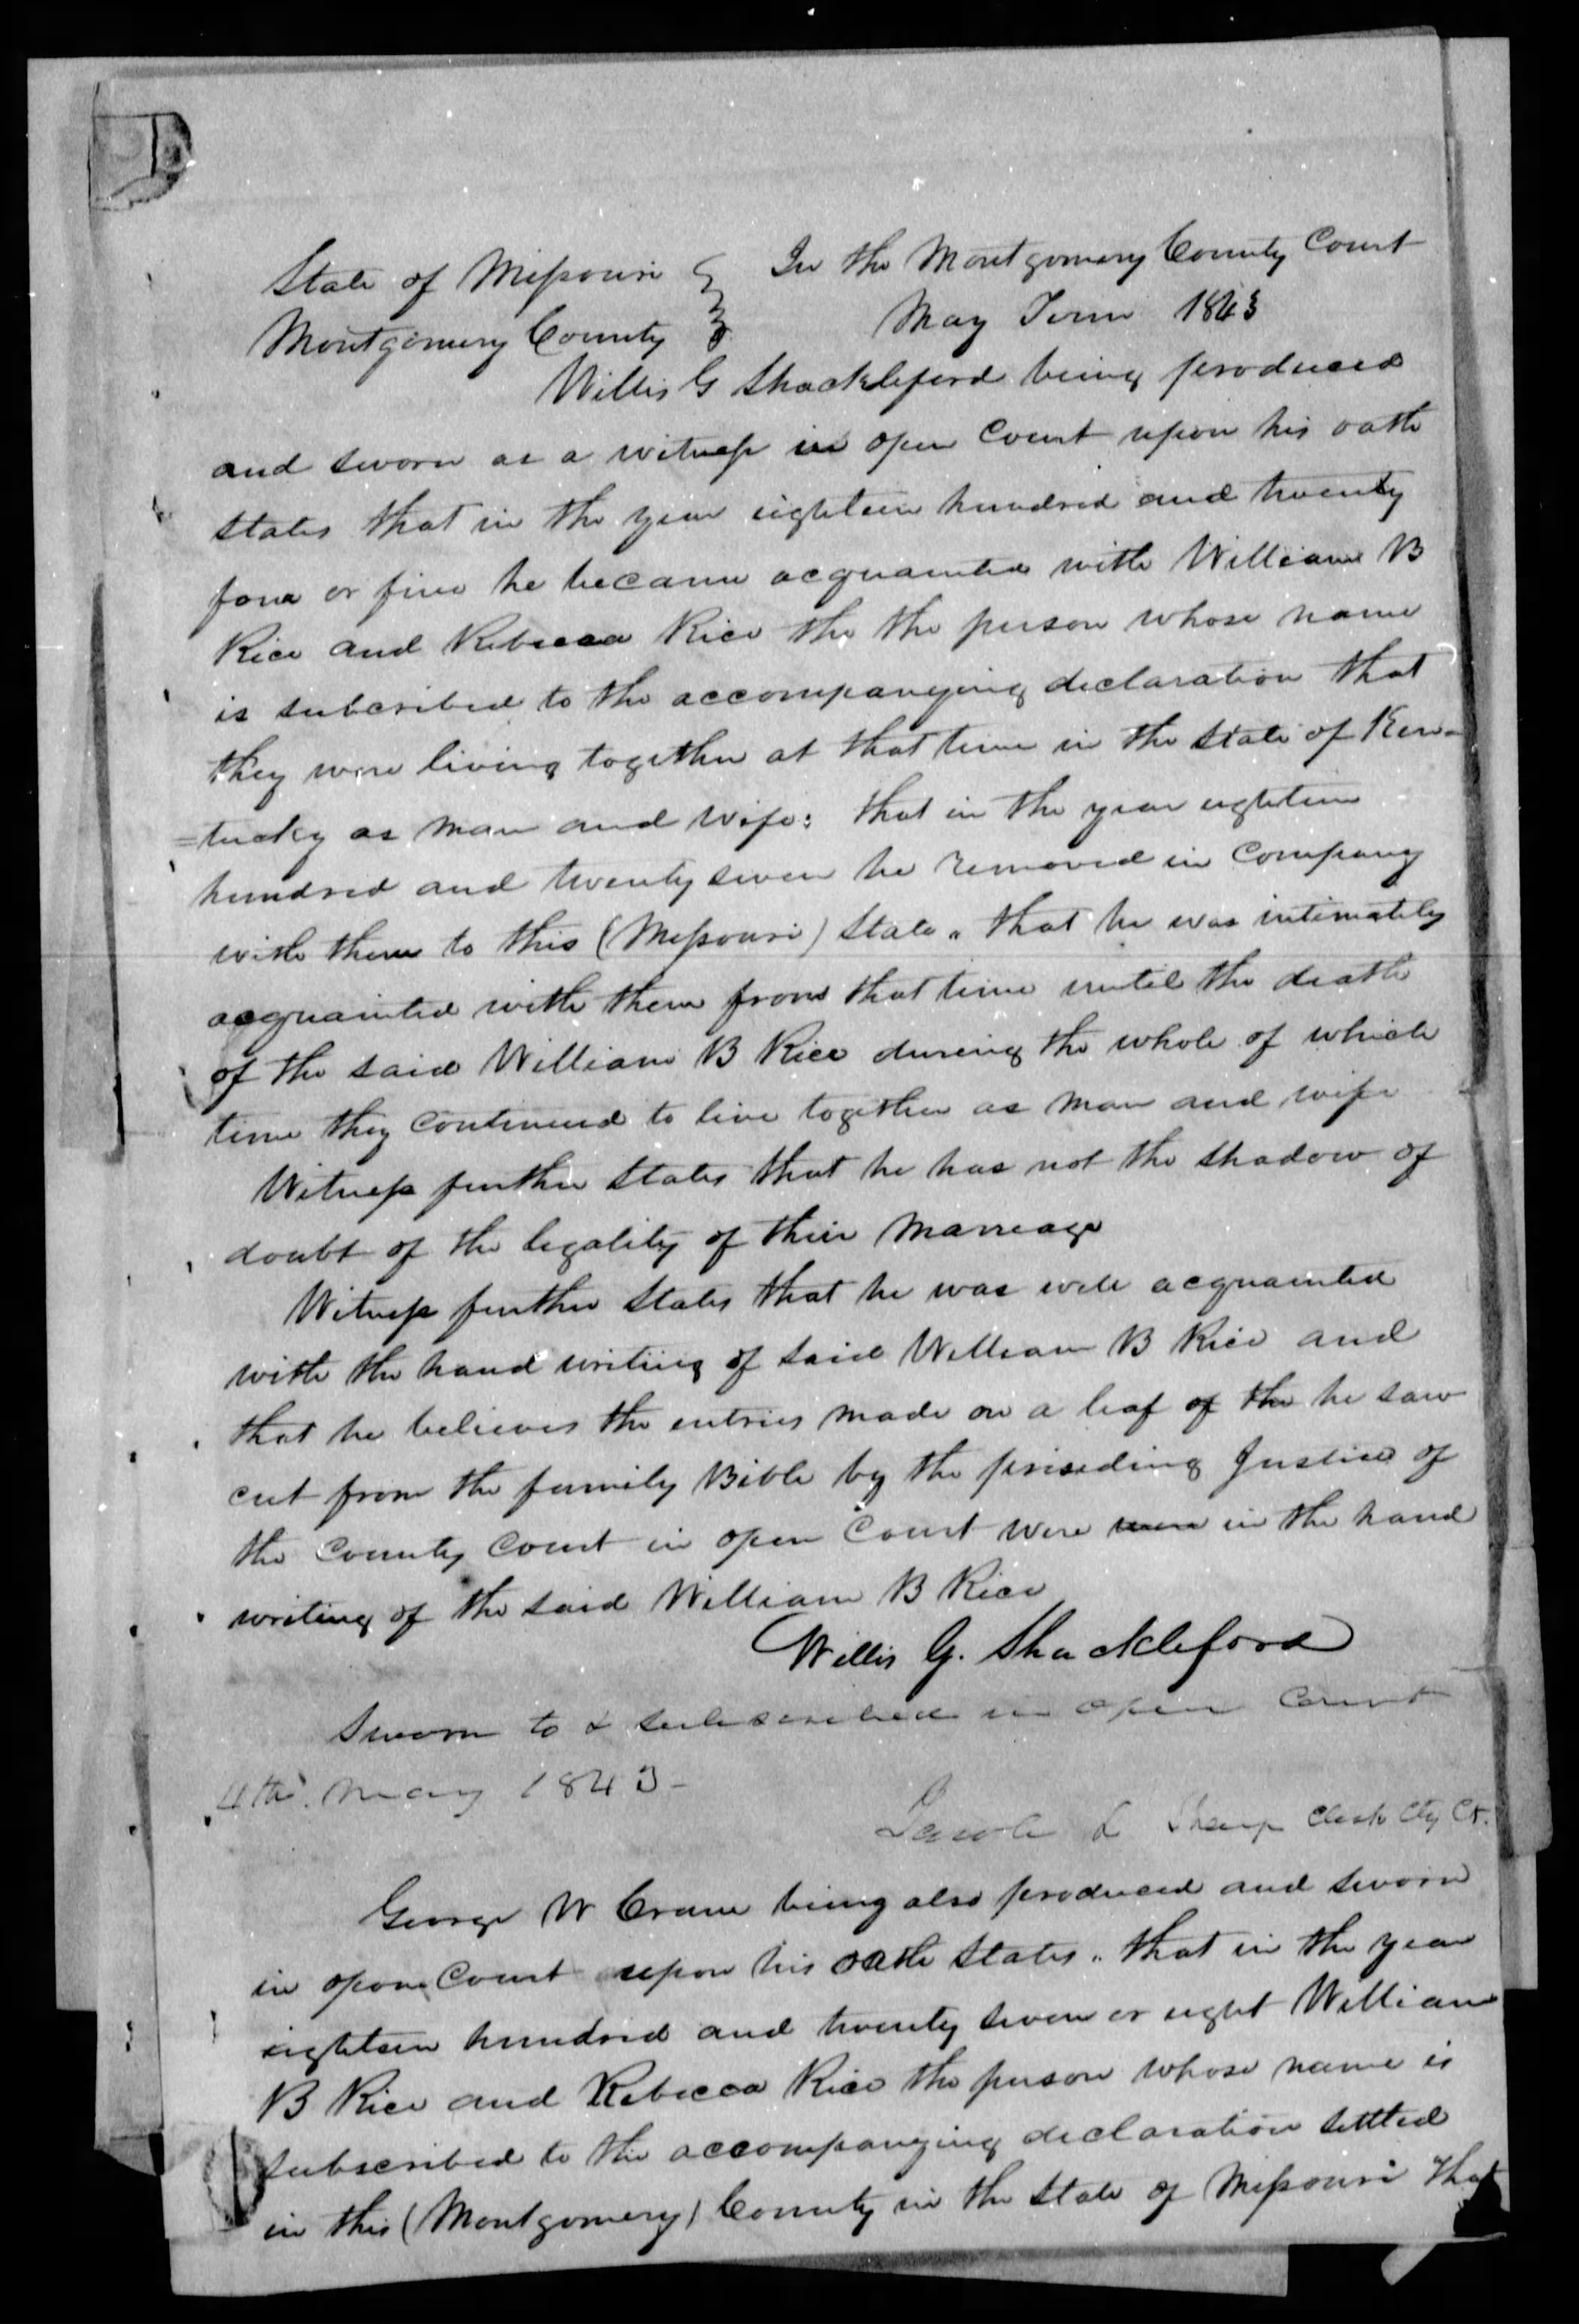 State of Missouri } In the Montgomery County Court
Montgomery County } May Term 1843
Willis G Shackleford being produced
and sworn as a witness in open Court upon his oath
states that in the year eighteen hundred and twenty
four or five he became acquainted with William B
Rice and Rebecca Rice the the person whose name
is subcribed to the accompanying declaration that
they were living together at that time in the State of Ken-
=tucky as man and wife: that in the year eighteen
hundred and twenty seven he removed in company
with them to this (Missouri) State. that he was intimately
acquainted with them from that time until the death
of the said William B Rice dureing the whole of which
time they continued to live together as man and wife
Witness further States that he has not the shadow of
doubt of the legality of their marreage
Witness further States that he was well acquainted
with the hand writing of said William B Rice and
that he believes the entries made on a leaf of the he saw
cut from the family Bible by the presiding Justice of
the County Court in open Court were were in the hand
writing of the said William B Rice
Willis G. Shackleford
Sworn to & subscribed in open Court
4th. May 1843-
Jacob L Sharp Clerk Cty Ct.
George W Crane being also produced and sworn
in open Court upon his oath states. that in the year
eighteen hundred and twenty seven or eight William
B Rice and Rebecca Rice the person whose name is
subscribed to the accompanying declaration settled
in this (Montgomery) County in the State of Missouri that